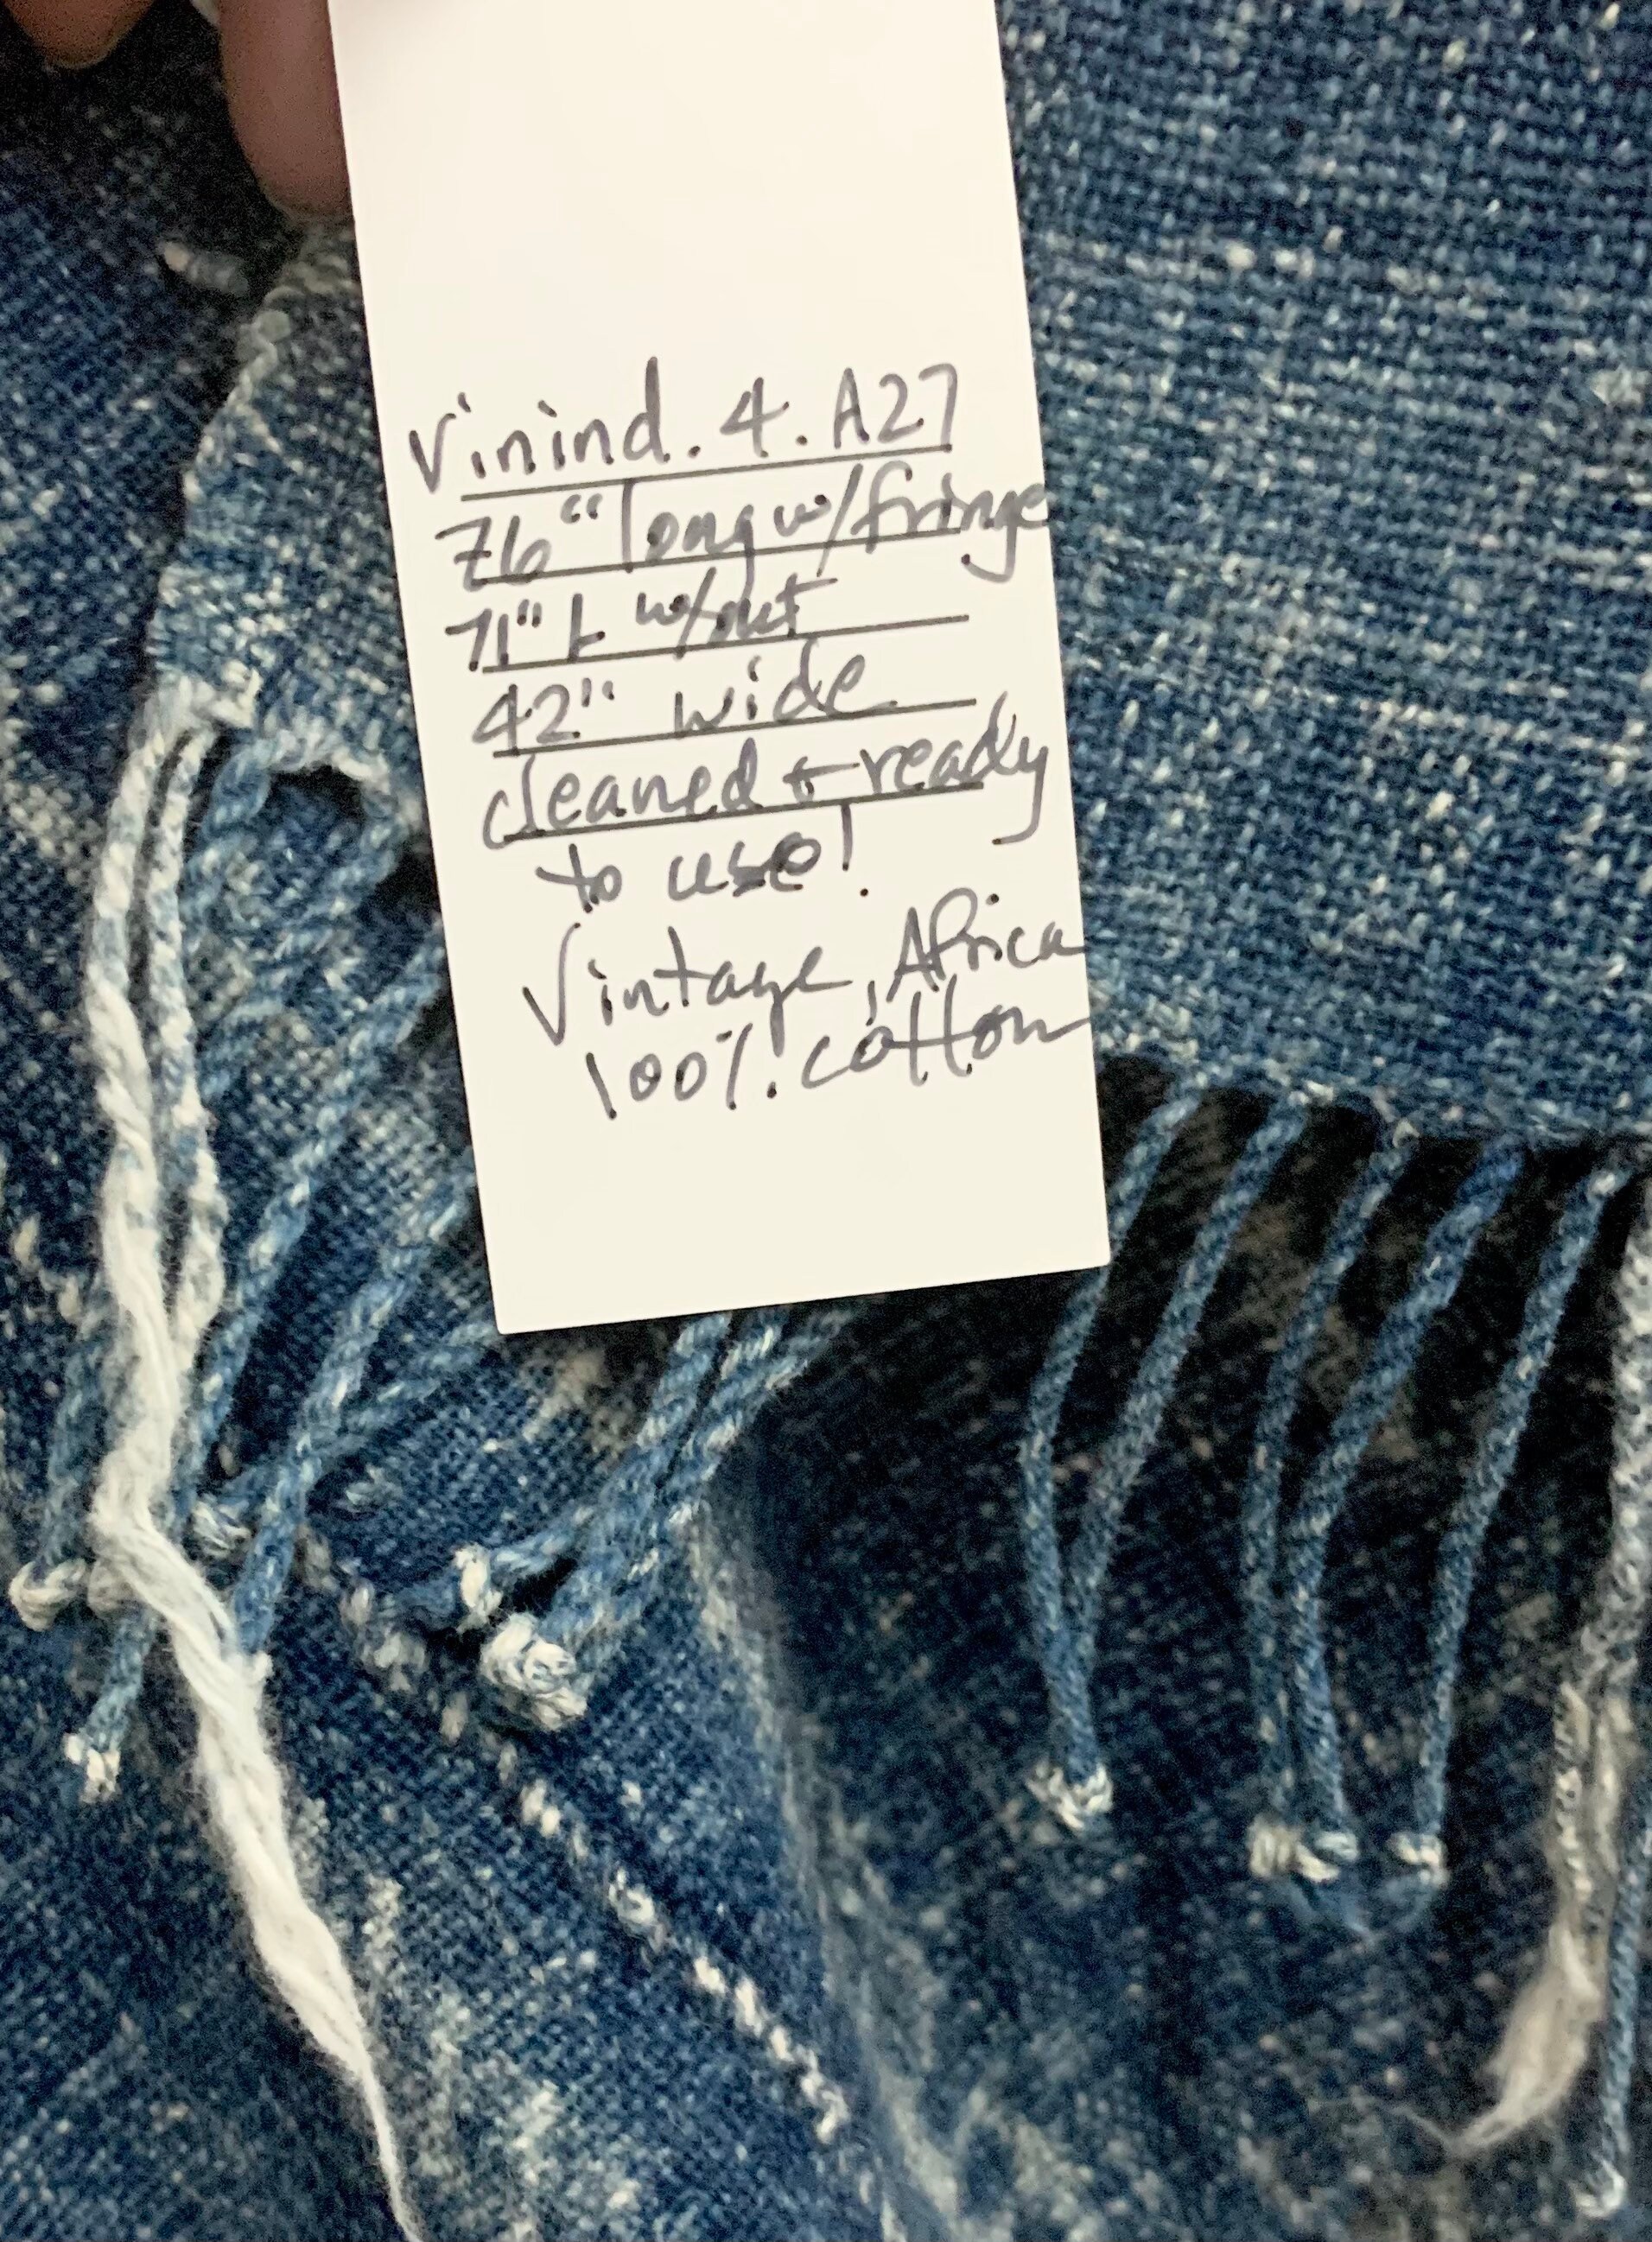 Vinind. 4. A27
76" long w/fringe
71" L w/out
42" wide
cleaned + ready
to use!
Vintage, Africa
100% cotton